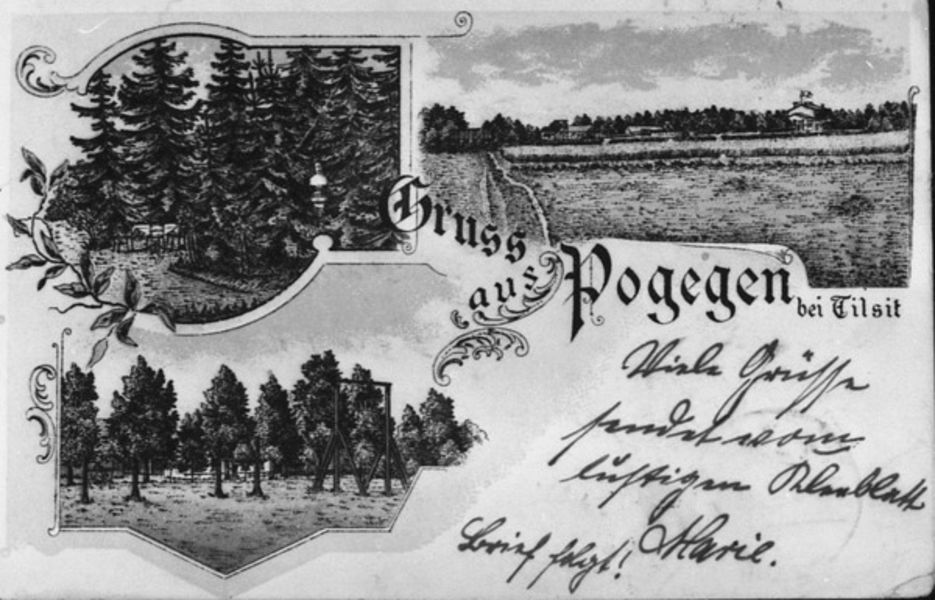 Gruss
aus
Pogegen
bei Tilsit
Viele Grüsse
sendet vom
lustigen Kleeblatt
Marie.
Brief folgt!